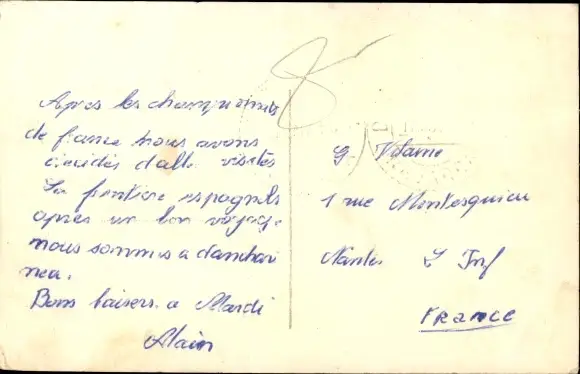 Apres les championnats
de france nous avons
decides d'aller visités
La frontiere espagnole
apres un bon voyage
nous sommes a danchari
nea.
Bons baisers. a Mardi
Alain
G. Vitame
1 rue Montesquieu
Nantes L Inf
FRANCE